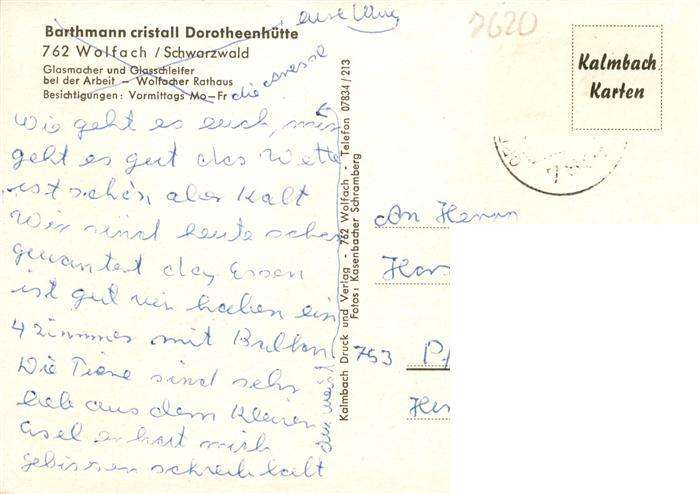 Barthmann cristall Dorotheenhütte
762 Wolfach / Schwarzwald
Glasmacher und Glasschleifer
bei der Arbeit – Wolfacher Rathaus
Besichtigungen: Vormittags Mo–Fr
7620
Kalmbach
Karten
Wie geht es euch, mir
geht es gut das Wette
ist schön, aber Kalt
Wir sind heute schon
gewantert das Essen
ist gut wir haben ein
4 zimmer mit Balkon
Die Tiere sind sehr
lieb aus dem kleinen
esel er hat mich
gebissen schreib halt
Kalmbach Druck und Verlag - 762 Wolfach - Telefon 07834/213
Fotos: Kasenbacher Schramberg
An Herrn
Hor
753 P
Her